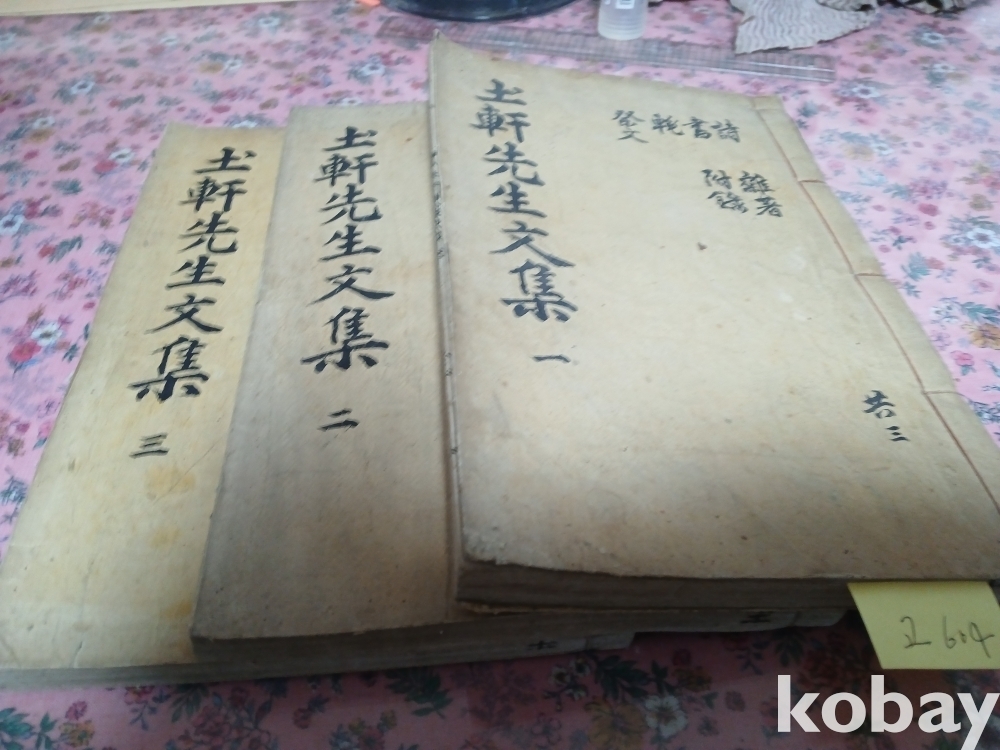 圡軒先生文集 一
詩 書 輓 祭文
雜著
附錄
共三
圡軒先生文集 二
圡軒先生文集 三
604
kobay